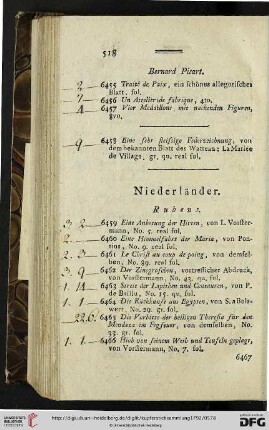 518
Bernard Picart.
2 — 6455 Traité de Paix, ein schönes allegorisches
Blatt. fol.
7 — 6456 Un Atellier de fabrique, 4to.
4 — 6457 Vier Medaillons mit nackenden Figuren,
8vo.
9 — 6458 Eine sehr fleissige Federzeichnung, von
dem bekannten Blatt des Watteau; La Mariée
de Village, gr. qu. real fol.
Niederländer.
Rubens.
3. 2 — 6459 Eine Anbetung der Hirten, von L. Vorster-
mann, No. 5. real fol.
2 — 6460 Eine Himmelfahrt der Maria, von Pon-
zius, No. 9. real fol.
2. — 6461 Le Christ au coup de poing, von demsel-
ben, No. 89. real fol.
3. 9 — 6462 Der Zinsgroschen, vortreflicher Abdruck,
von Vorstermann, No. 43. qu. fol.
1. 14. — 6463 Streit der Lapithen und Centauren, von P.
de Bailliu, No. 15. qu. fol.
1. 1 — 6464 Die Rückkunft aus Egypten, von S. a Bols-
wert, No. 29. gr. fol.
22.6. 6465 Die Vorbitte der heiligen Theresia für den
Mendoza im Fegfeuer, von demselben, No.
33. gr. fol.
1. 1 — 6466 Hiob von seinem Weib und Teufeln geplagt,
von Vorstermann, No. 7. fol.
6467
© Universitätsbibliothek Heidelberg
gefördert durch
DFG